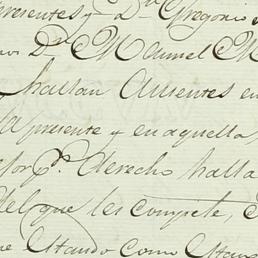 presentes y Dⁿ Gregorio
Dⁿ Manuel M
hallan Ausentes en
la presente y en aquella,
por qᵉ derecho halla
del que les compete,
Estando como Estan